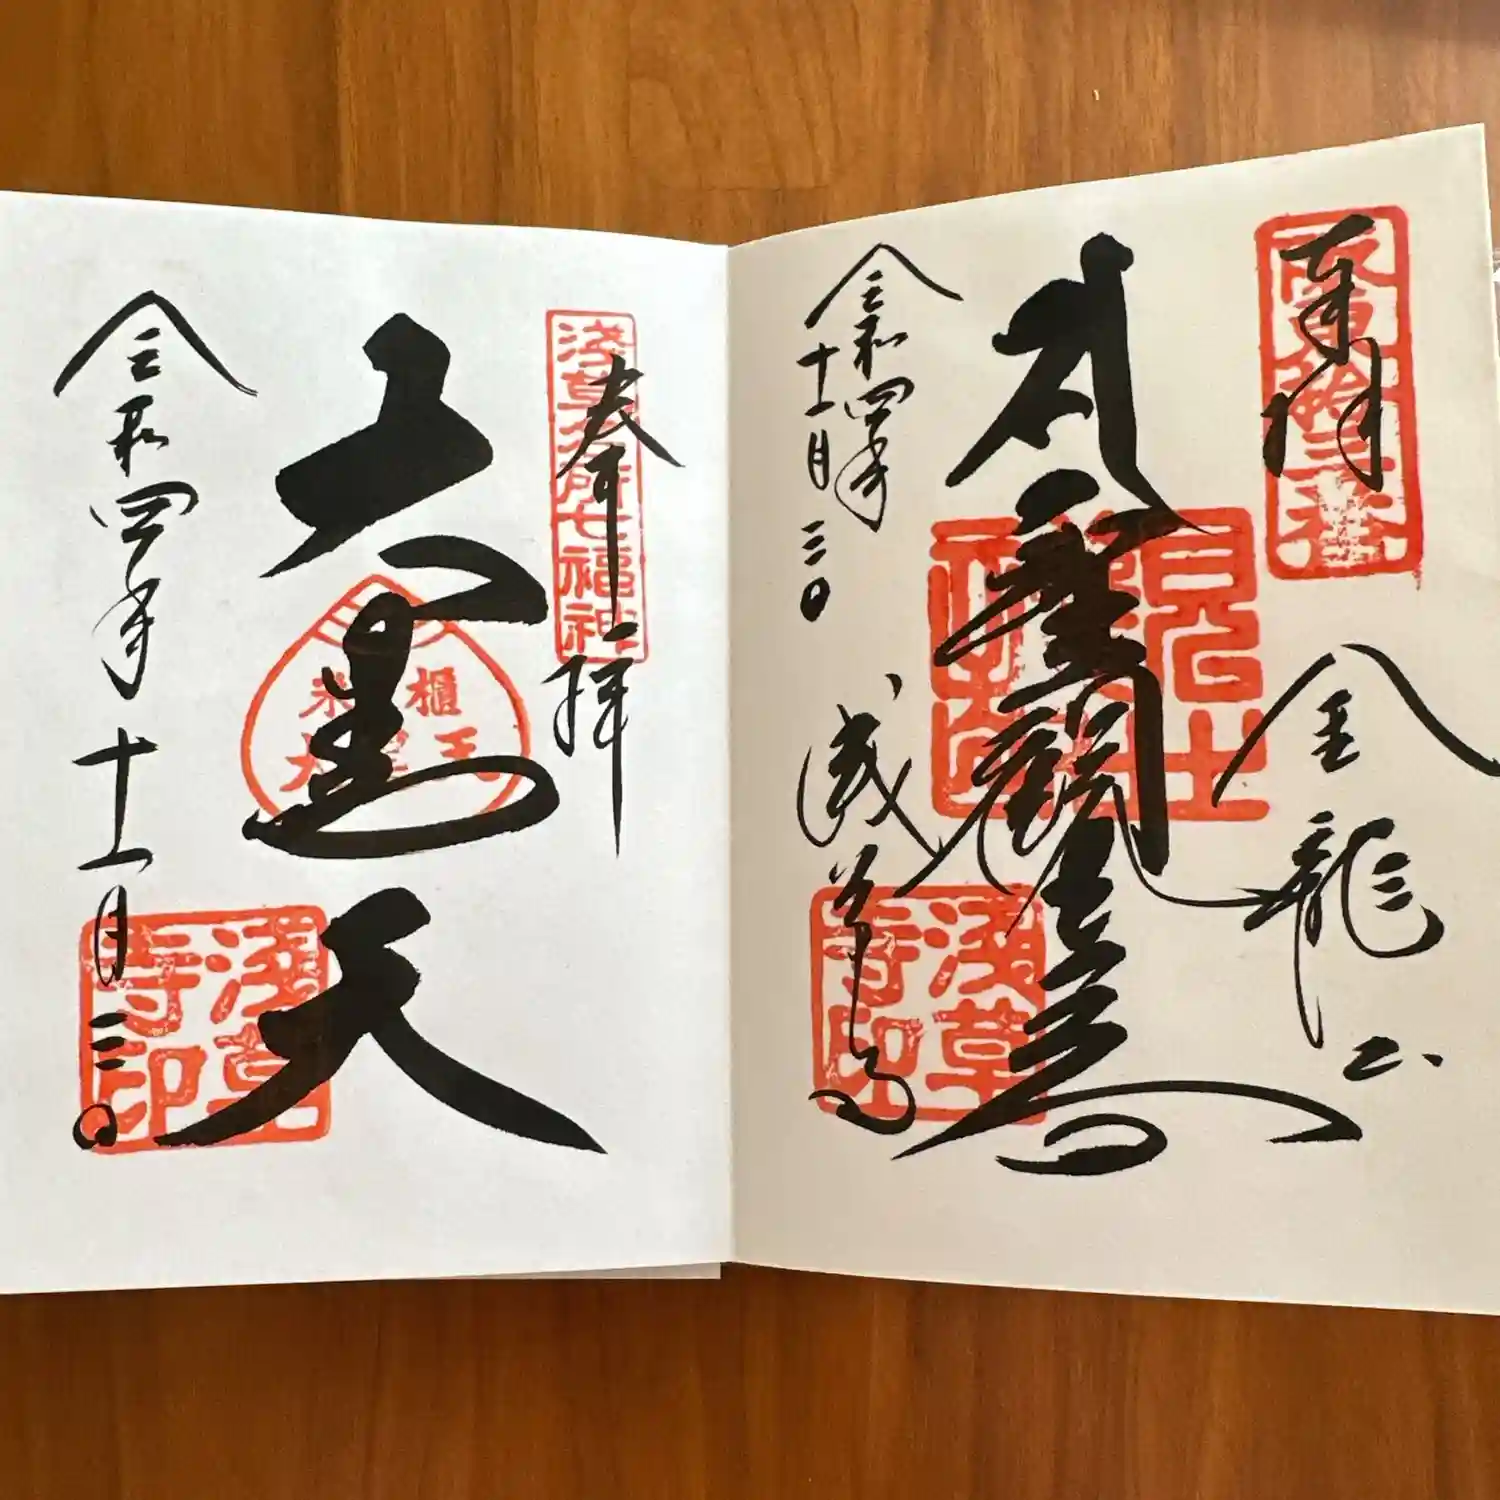 奉拝
坂東拾三番
金龍山
聖観世音
浅草寺
浅草寺印
令和四年
十一月三日
奉拝
浅草名所七福神
大黒天
浅草寺印
令和四年十一月三日